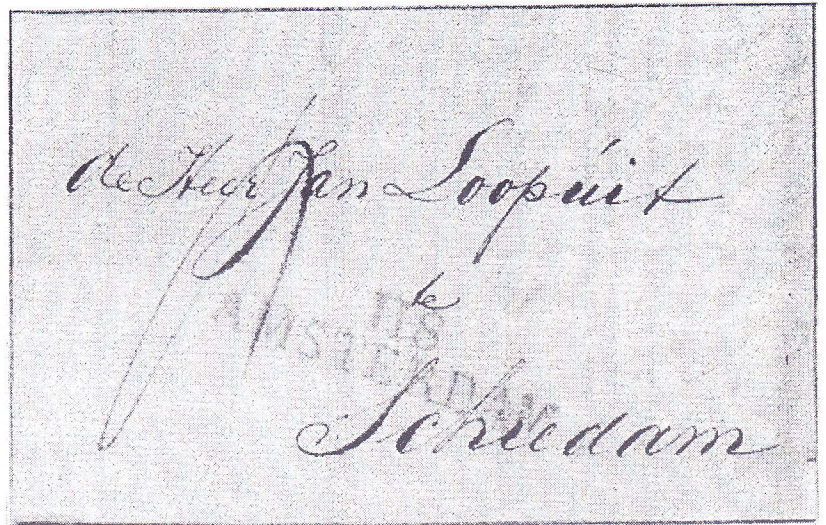 de Heer Jan Loopuit
te
118
AMSTERDAM
Schiedam